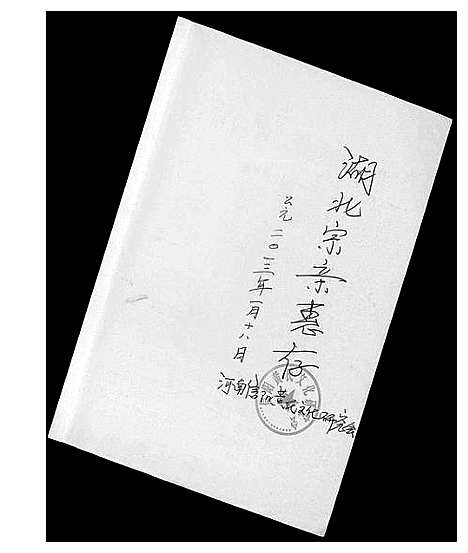 湖北宗亲惠存
公元二〇一三年一月十八日
河南信阳黄氏文化研究会